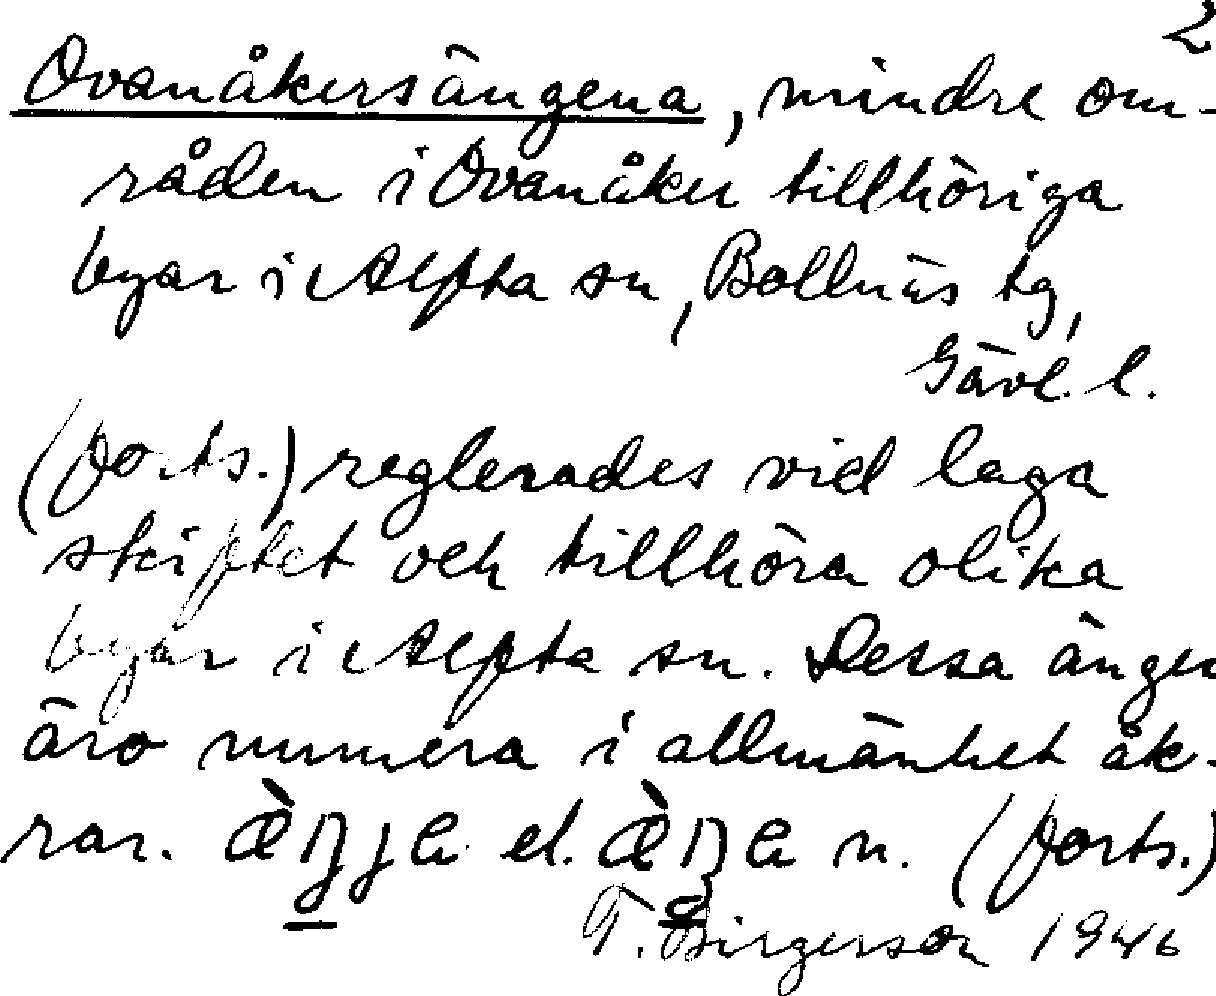 2
Ovanåkersängena, mindre om-
råden i Ovanåker tillhöriga
byar i Alfta sn, Bollnäs tg,
Gävl. l.
(forts.) reglerades vid laga
skiftet och tillhöra olika
byar i Alfta sn. Dessa ängar
äro numera i allmänhet åk-
rar. æ̀ŋja el. æ̀ŋa n. (forts.)
T. Birgerson 1946